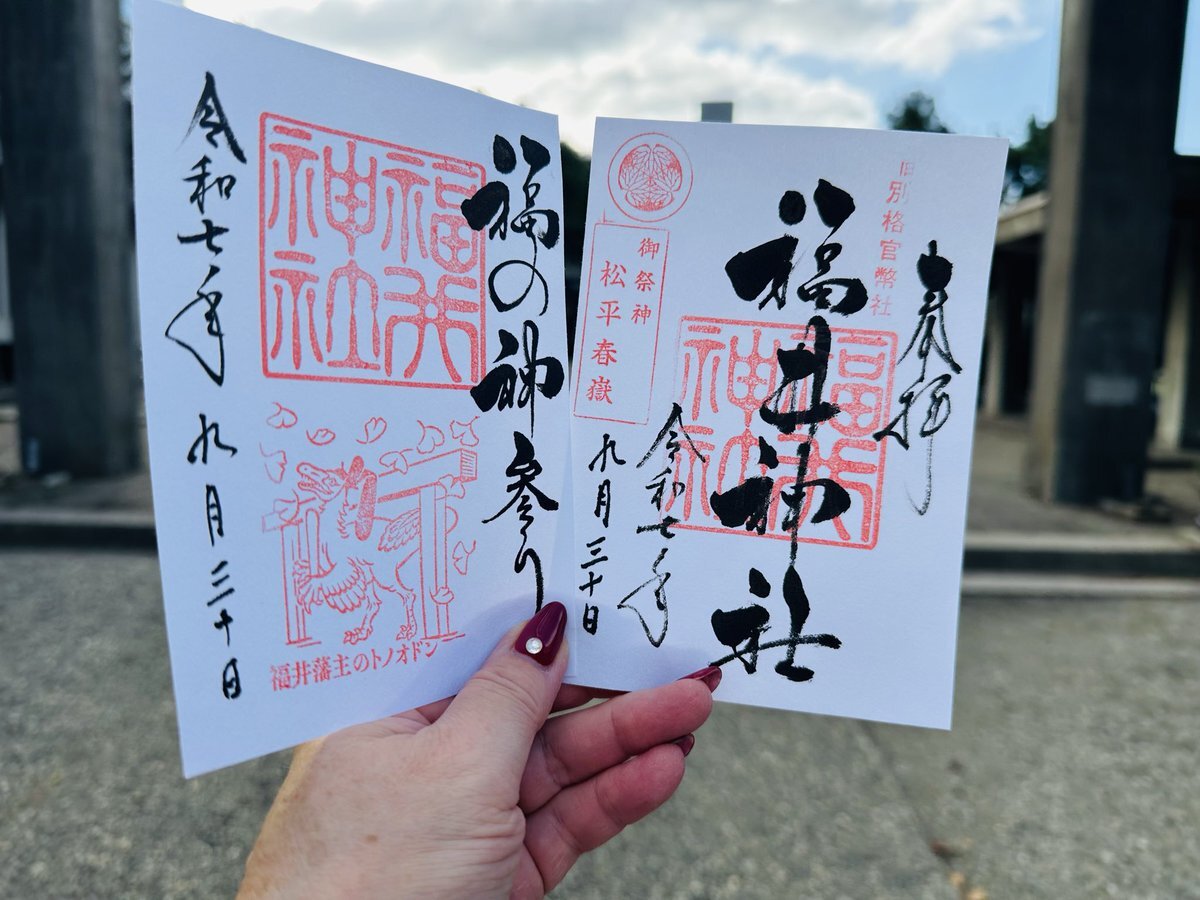 福の神参り
福井
神社
令和七年九月三十日
福井藩主のトノオドン
奉拝
旧別格官幣社
福井神社
福井
神社
御祭神
松平春嶽
令和七年
九月三十日